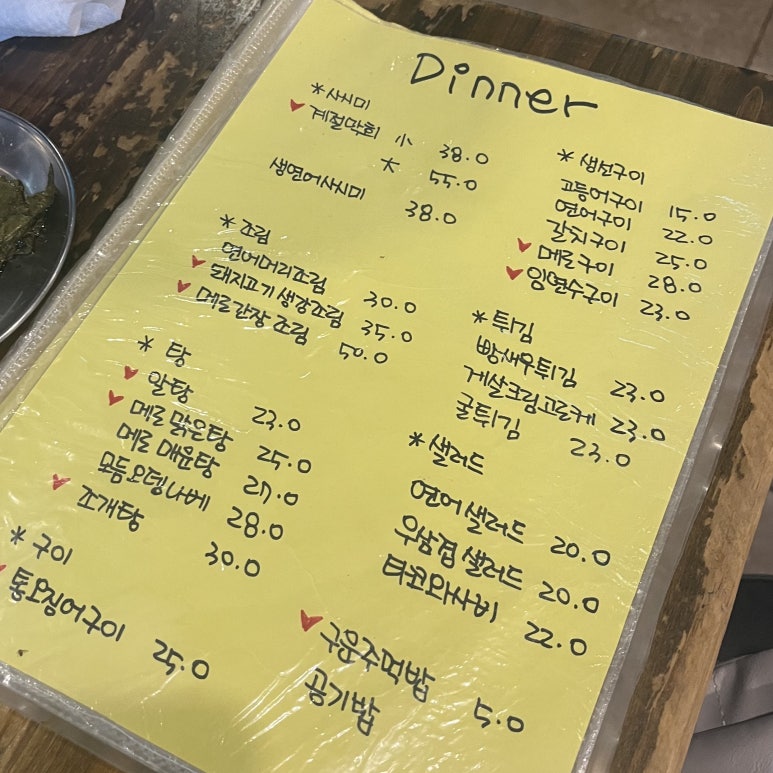 Dinner
* 사시미
계절막회 小 38.0
大 55.0
생연어사시미 38.0
* 조림
연어머리조림 30.0
돼지고기생강조림 35.0
메로간장조림 50.0
* 탕
알탕 23.0
메로 맑은탕 25.0
메로 매운탕 27.0
모듬오뎅나베 28.0
조개탕 30.0
* 구이
통오징어구이 25.0
* 생선구이
고등어구이 15.0
연어구이 22.0
갈치구이 25.0
메로구이 28.0
임연수구이 23.0
* 튀김
빵새우튀김 23.0
게살크림고로케 23.0
굴튀김 23.0
* 샐러드
연어샐러드 20.0
우삼겹 샐러드 20.0
타코와사비 22.0
구운주먹밥 5.0
공기밥